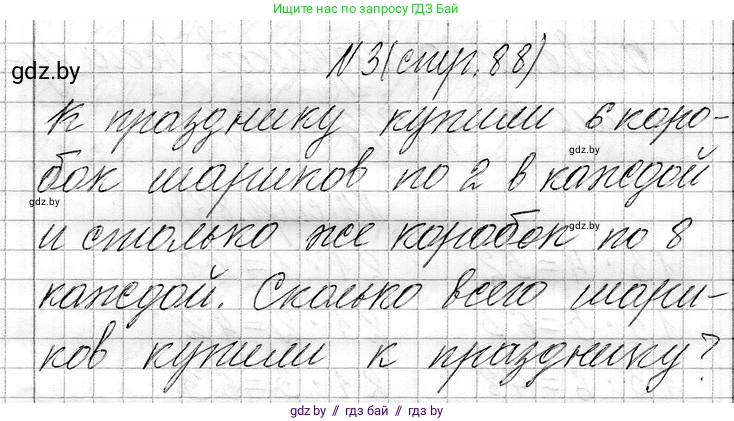 Ищите нас по запросу ГДЗ Бай
gdz.by
№3(стр. 88)
К празднику купили 6 коро-
gdz.by
бок шариков по 2 в каждой
gdz.by
и столько же коробок по 8
gdz.by
каждой. Сколько всего шари-
ков купили к празднику?
gdz.by // гдз бай // гдз by